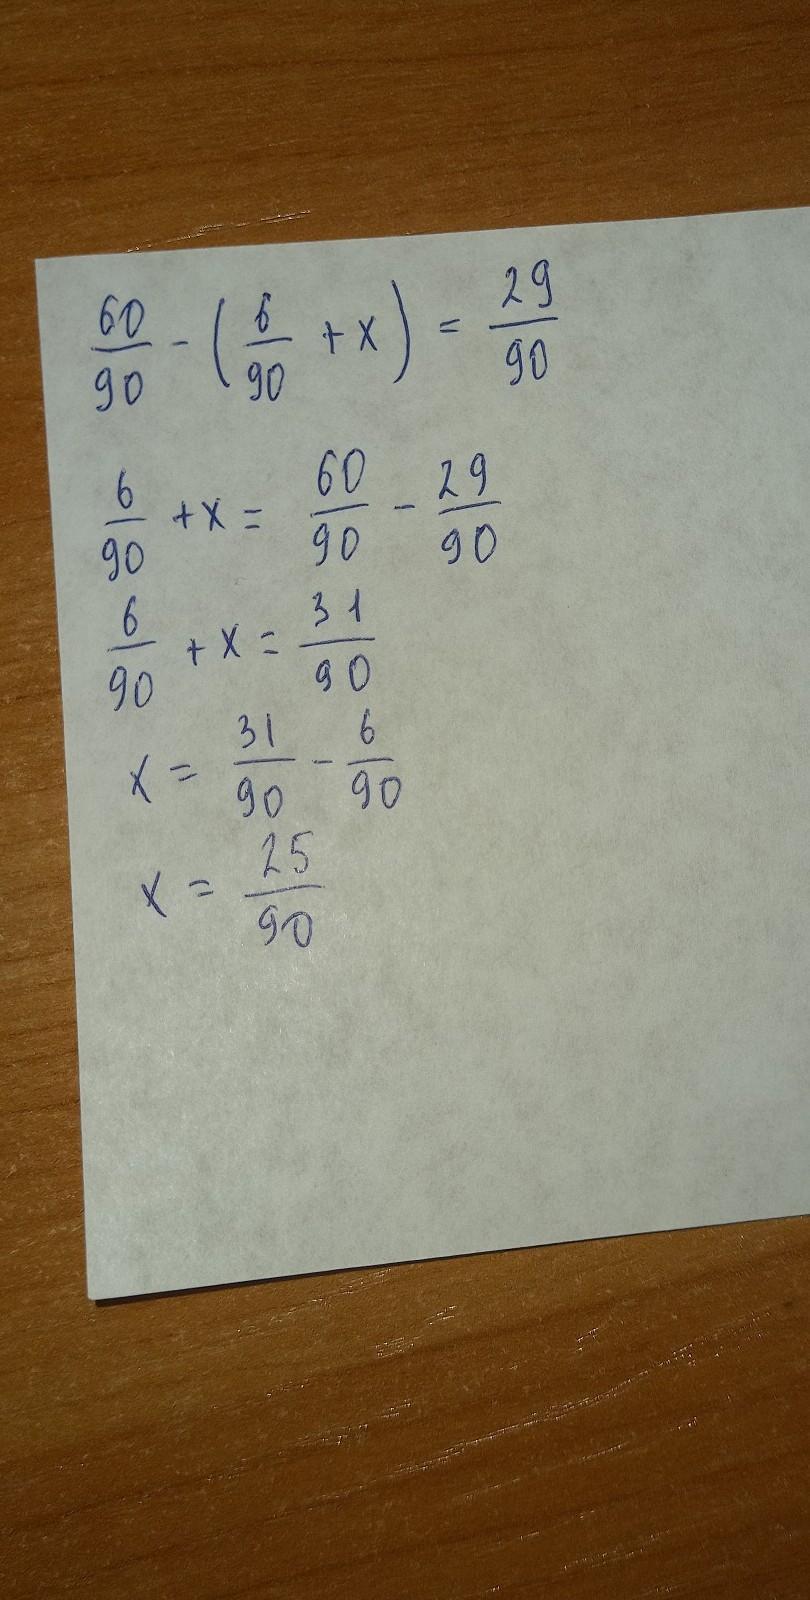 60/90 - (6/90 + x) = 29/90
6/90 + x = 60/90 - 29/90
6/90 + x = 31/90
x = 31/90 - 6/90
x = 25/90